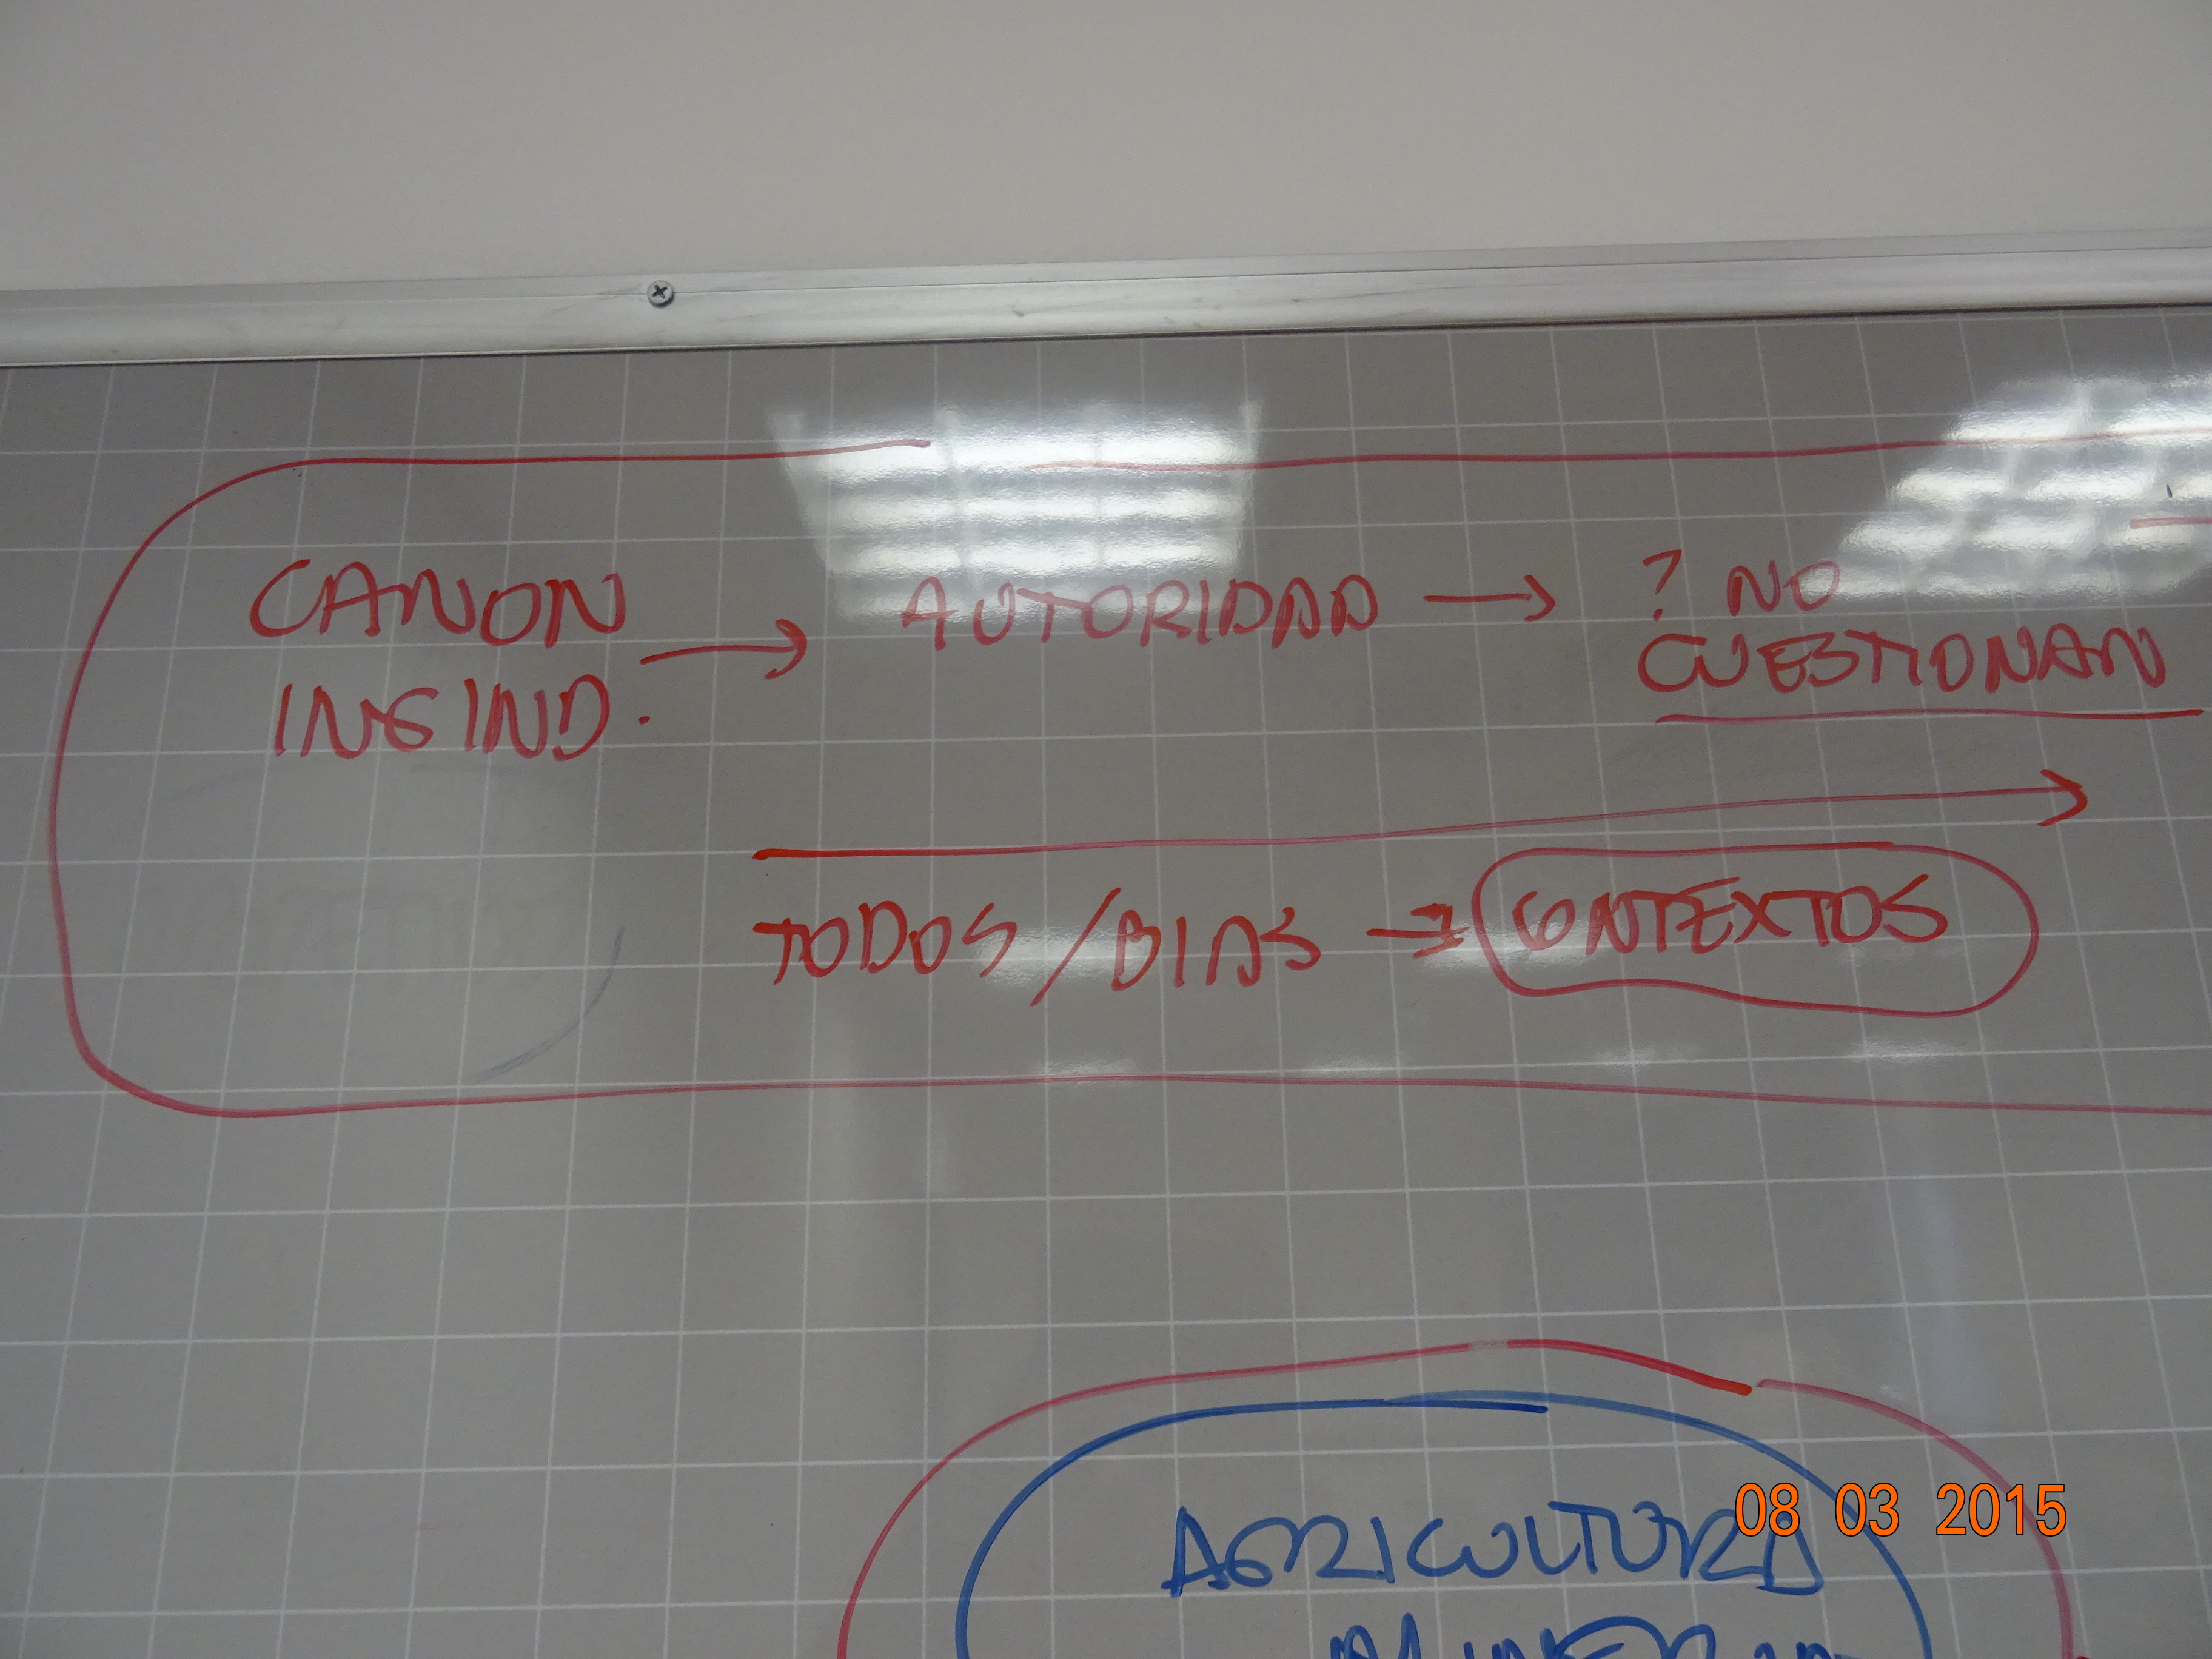 CANON → AUTORIDAD → ? NO
ING IND. CUESTIONAN
TODOS / BIAS → CONTEXTOS
AGRICULTURA
08 03 2015